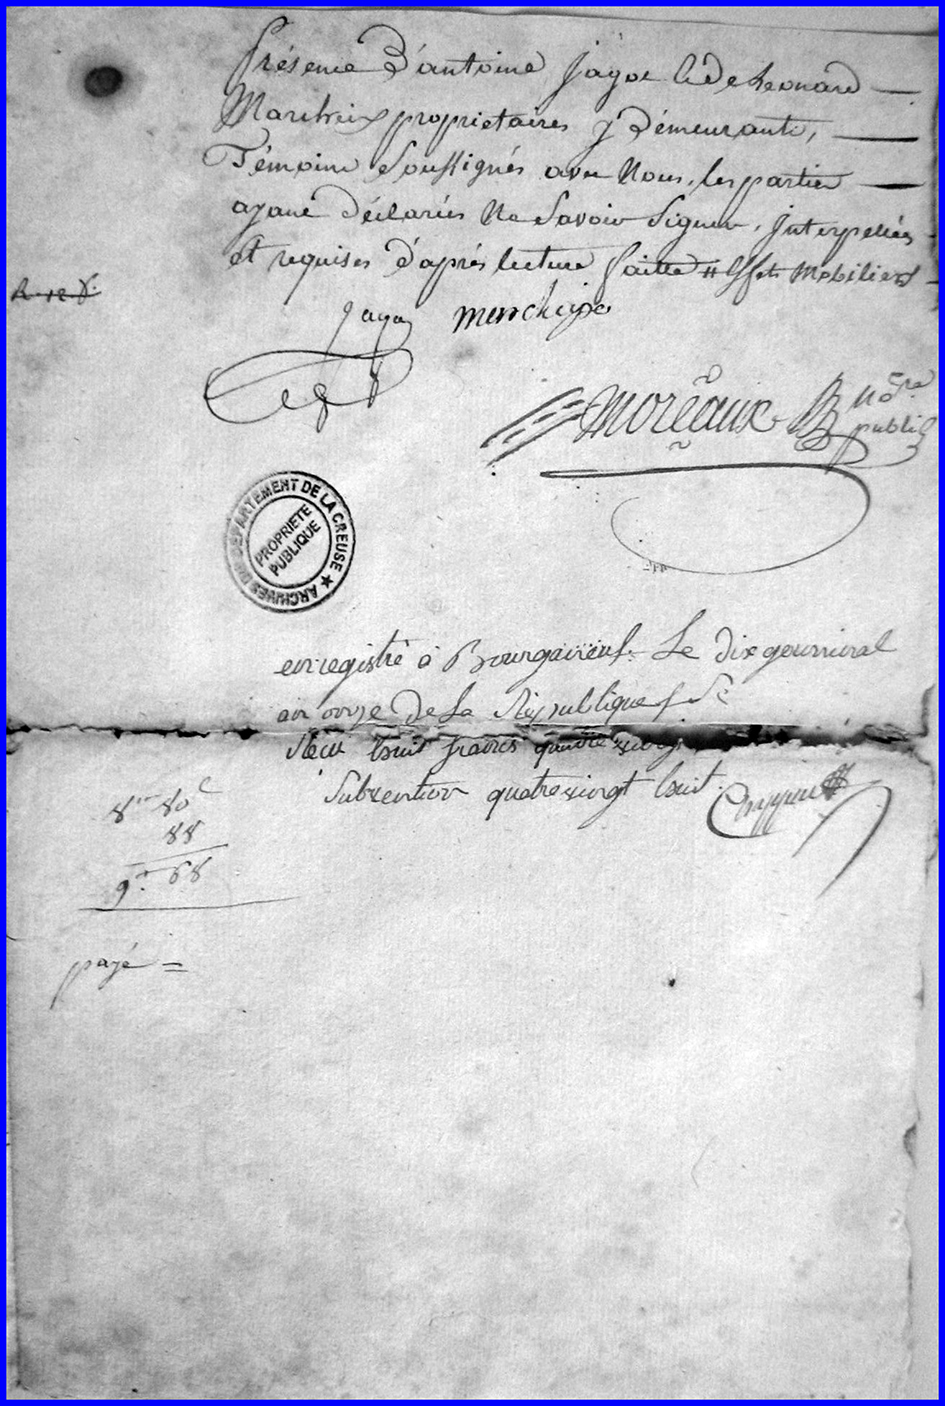 présence d'antoine Jagot & de Leonard
Marcheix propriétaires y démeurants,
Témoins Soussignés avec Nous, les parties
ayant déclarées Ne Savoir Signer, Interpellées
et requises d'après lecture faitte # Effets Mobiliers
R. 12 d.
Jagot marcheix
Moreaux No.re
public
ARCHIVES DU DEPARTEMENT DE LA CREUSE ★
PROPRIETE
PUBLIQUE
enregistré à Bourganeuf. Le dix germinal
an onze De La République f.
Reçu huit francs quatre vingt
Subvention quatrevingt huit
8 80 c
88
9 68
payé =